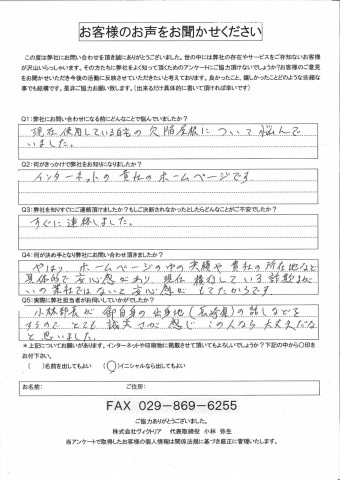 お客様のお声をお聞かせください
この度は弊社にお問い合わせを頂き誠にありがとうございました。世の中には弊社の存在やサービスをご存知ないお客様
が沢山いらっしゃいます。その方たちに弊社をよく知って頂くためのアンケートにご協力頂けないでしょうか?お客様のご意見
をお聞かせいただき今後の活動に反映させていただきたいと考えております。良かったこと、嬉しかったことどのような些細な
事でも結構です。是非ご協力お願い致します。(出来るだけ具体的に書いて頂ければ幸いです)
Q1:弊社にお問い合わせになる前にどんなことで悩んでいましたか?
現在使用している自宅の欠陥屋根について悩んで
いました。
Q2:何がきっかけで弊社をお知りになりましたか?
インターネットの貴社のホームページです
Q3:弊社を知りすぐにご連絡頂けましたか?もしご決断されなかったとしたらどんなことがご不安でしたか?
すぐに連絡しました。
Q4:何が決め手となり弊社にお問い合わせ頂きましたか?
やはり、ホームページの中の実績や貴社の所在地など
具体的で安心感があり 現在横行している詐欺まがい
の業社ではないと安心感がもてたからです
Q5:実際に弊社担当者がお伺いしていかがでしたか?
小林部長が御自身の出身地(長崎県)の話しなどを
するので とても誠実さが感じ この人なら大丈夫だな
と思いました。
*上記についてお願いがあります。インターネットや印刷物に掲載させて頂いてもよろしいでしょうか?下記の中から〇印を
お付下さい。
( )名前を出してもよい (〇)イニシャルなら出してもよい
お名前: ご住所:
FAX 029-869-6255
ご協力ありがとうございました。
株式会社ヴィクトリア 代表取締役 小林 弥生
当アンケートで取得したお客様の個人情報は関係法規に基づき厳正に管理いたします。